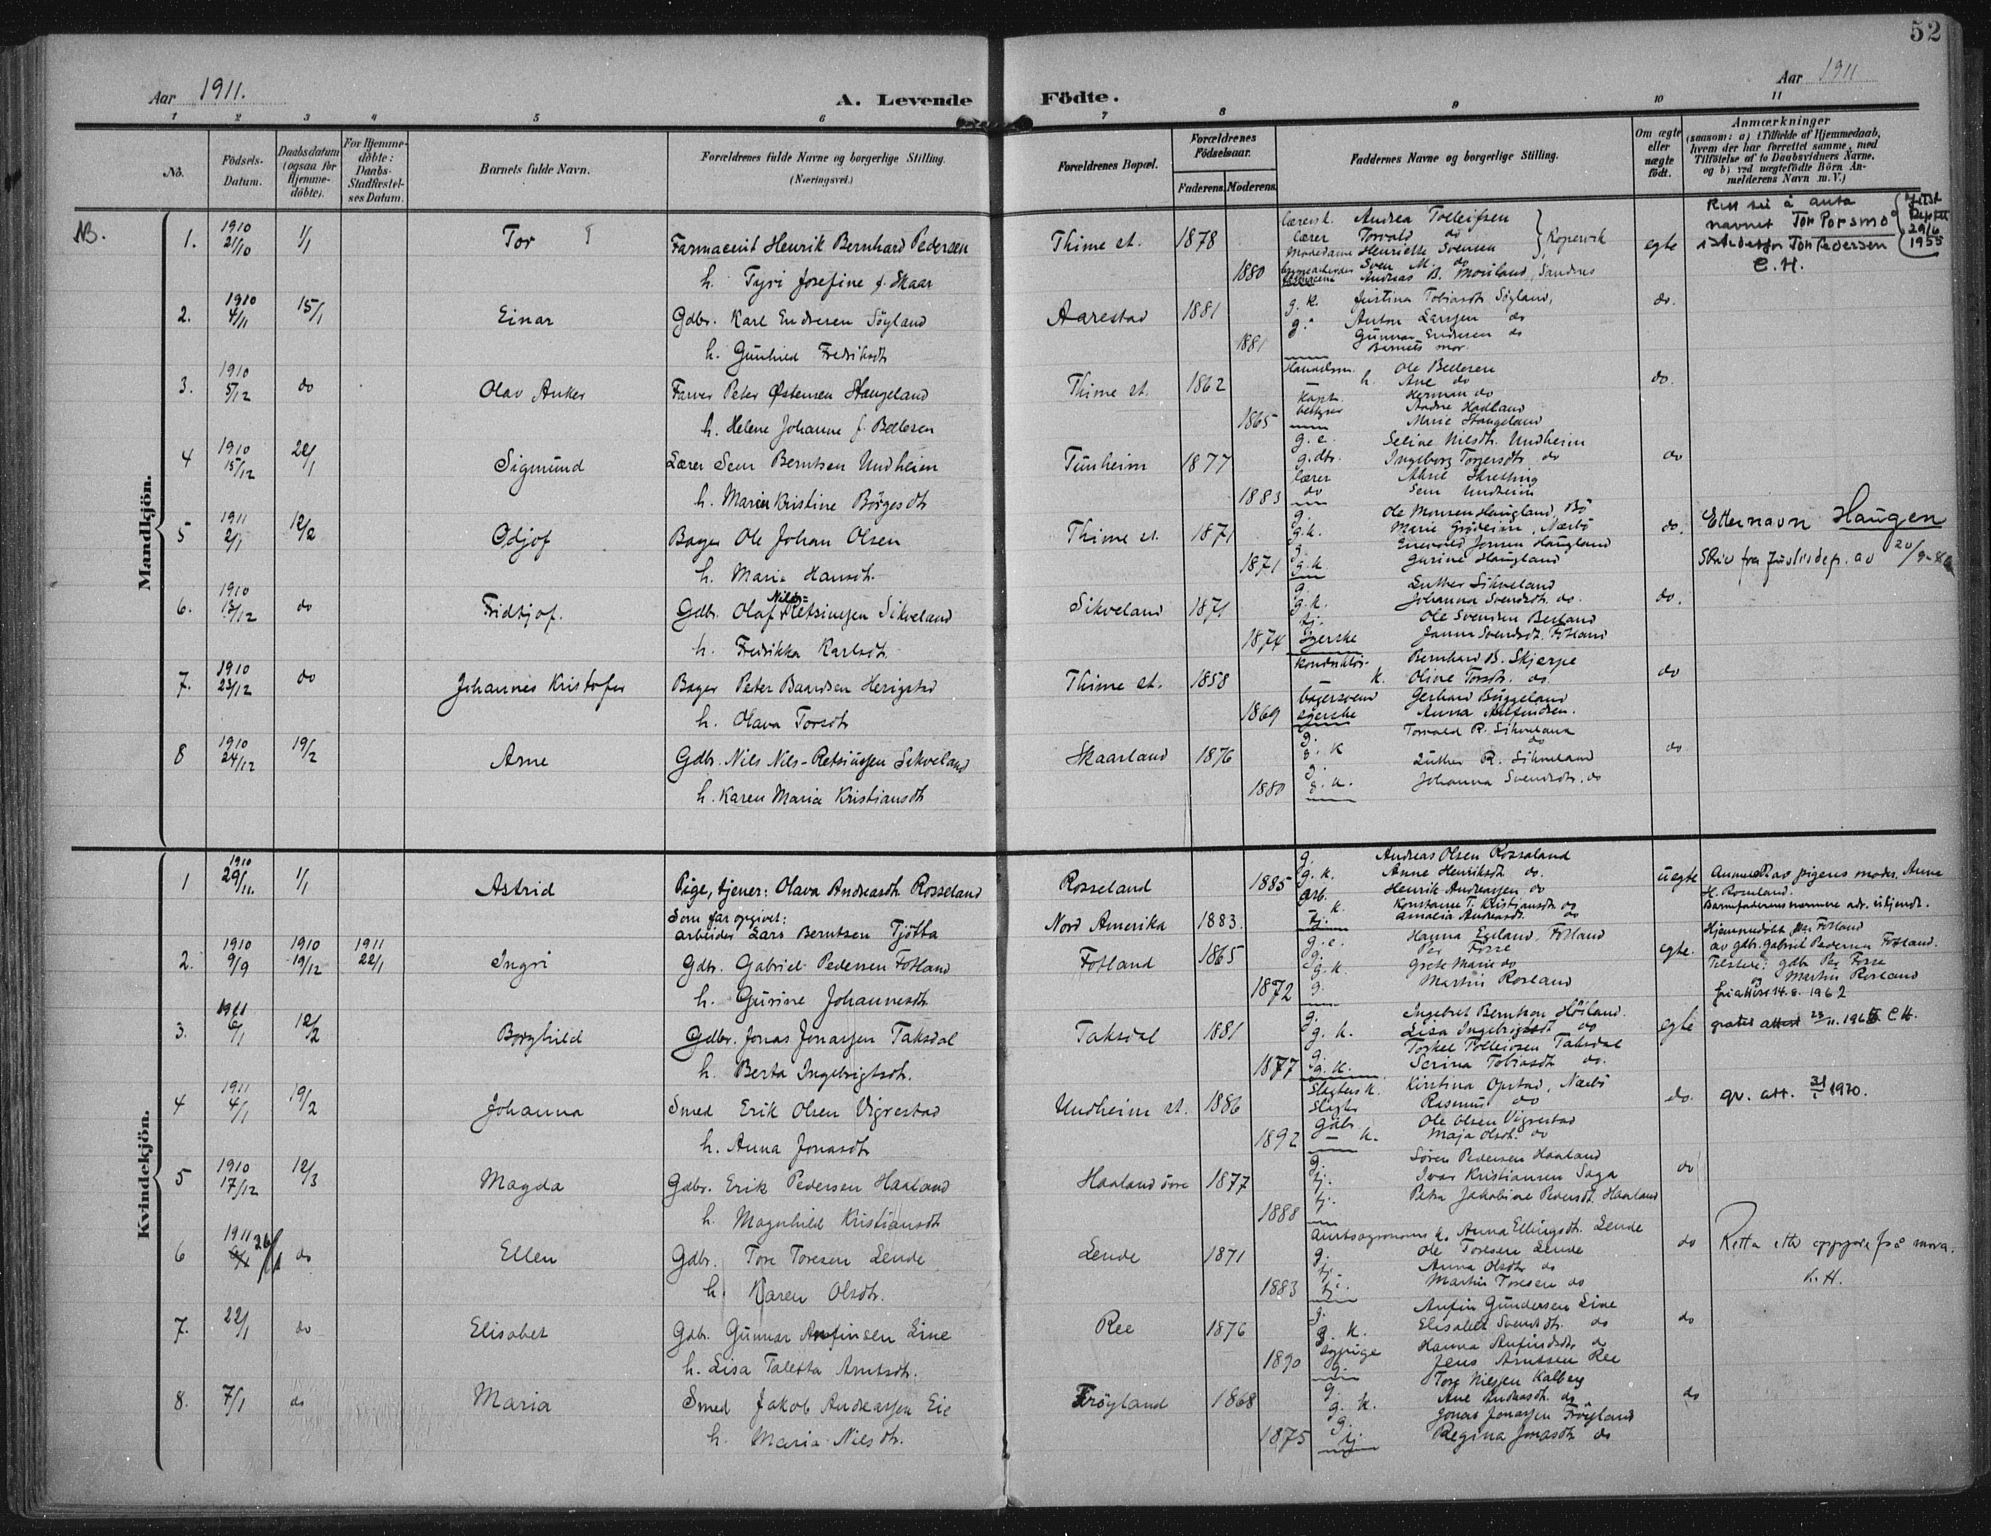 52
Aar 1911.
A. Levende Födte.
Aar 1911
1 2 3 4 5 6 7 8 9 10 11
No.
Födsels-Datum.
Daabsdatum (ogsaa for Hjemmedöbte).
For Hjemmedöbte: Daabs-Stadfæstelses Datum.
Barnets fulde Navn.
Forældrenes fulde Navne og borgerlige Stilling.
(Næringsvei.)
Forældrenes Bopæl.
Forældrenes Födselsaar.
Faderens. Moderens.
Faddernes Navne og borgerlige Stilling.
Om ægte eller uægte födt.
Anmærkninger
(saasom: a) i Tilfælde af Hjemmedaab, hvem der har forrettet samme, med Tilföielse af to Daabsvidners Navne, og b) ved uægtefödte Börn Anmelderens Navn m. V.)
Mandkjön.
NB.
1. 1910 21/10 1/1 Tor Farmaceut Henrik Bernhard Pedersen
h. Tyri Josefine f. Skaar
Thime st. 1878 1880
lærersk. Andrea Tolleifsen
lærer Torvald do
Modedame Henriette Svensen
Sven M. do
Andreas B. Mosiland, Sandnes
Kopervik
egte
Rett til å anta
navnet Tor Porsmo
istedetfor Tor Pedersen
C.H.
29/6 1955
2. 1910 4/11 15/1 Einar Gdbr. Karl Endresen Söyland
h. Gunhild Fredriksdt
Aarestad 1881 1881
g. k. Justina Tobiasdt Söyland,
g. Anton Larsen do
Gunnar Endresen do
Barnets mor.
do.
3. 1910 5/12 do Olav Anker Farver Peter Østensen Haugeland
h. Helene Johanne f. Bollesen
Thime st. 1862 1865
Handelsm. Ole Bollesen
h. Ane do
Kapt. Herman do
bestyrer Andre Hadland
Marie Haugeland
do.
4 1910 15/12 22/1 Sigmund Lærer Sem Berntsen Undheim
h. Maria Kristine Börgesdt
Tunheim 1877 1883
g. e. Seline Nilsdt. Undheim
g.dtr. Ingeborg Torgersdt. do
lærer Aksel Skretting
do Sem Undheim
do
5 1911 2/1 12/2 Odjof Bager Ole Johan Olsen
h. Maria Hansdt.
Thime st. 1871 1871
g. Ole Monsen Haugland, Bö
g.k. Marie Grödeim, Nærbö
g. Enevald Jonsen Haugland
g.k Gurine Haugland
do.
Etternavn Haugen
Skriv fra Justisdep. av 20/9-
6. 1910 13/12 do Fridtjof. Gdbr. Olaf Nils-Retsiusen Sikveland
h. Fredrikka Karlsdt.
Sikveland 1871 1874
g. Luther Sikveland
g.k. Johanna Svendsdt. do.
tj. Ole Svendsen Berland
Syerske Janne Svendsdt. Fotland
do.
7. 1910 23/12 do Johannes Kristofer Bager Peter Baardsen Herigstad
h. Olava Torsdt
Thime st. 1858 1869
Konduktör Bernhard B. Skjerpe
k. Oline Torsdt. do
bagersvend Gerhard Byggeland
syerske Anna Alfindsen.
do
8 1910 24/12 19/2 Arne Gdbr. Nils Nils-Retsiusen Sikveland
h. Karen Maria Kristiansdt
Skaarland 1876 1880
g. Torvald R. Sikveland
g. k do
g. Luther R. Sikveland
g. k. Johanna Svendsdt. do
do
Kvindekjön.
1 1910 29/11. 1/1 Astrid Pige, tjener: Olava Andreasdt. Rosseland
Som far opgivet:
arbeider Lars Berntsen Tjötta
Rosseland 1885
Nord Amerika 1883.
g. Andreas Olsen Rosseland
g. k. Anne Henriksdt do.
arb. Henrik Andreassen do
k. Konstanse T. Kristiansdt do
tj. Amalia Andreasdt. do
uegte
Anmeldt av pigens moder, Anne
H. Rosseland.
Barnefaderens nærmere adr. ukjendt.
2. 1910 9/9 1910 19/12 1911 22/1 Ingri Gdbr. Gabriel Pedersen Fotland
h. Gurine Johannesdt.
Fotland 1865 1872
g. e. Hanna Egeland, Fotland
g. Per Fosse
g. k. Grete Marie do
g. Martin Rosland
egte.
Hjemmedöbt paa Fotland
av gdb. Gabriel Pedersen Fotland.
Tilstede: gdb. Per Fosse
og Martin Rosland
fri attest 14.8.1962
3. 1911 6/1 12/2 Borghild Gdbr. Jonas Jonassen Taksdal
h. Berta Ingebrigtsdt.
Taksdal 1881 1877
g. Ingebret Berntsen Höiland.
g. k. Lisa Ingebrigtsdt do
g. Torkel Tolleivsen Taksdal
g. k. Serina Tobiasdt do.
egte
gratis attest 23/11. 196 C.H.
4 1911 4/1 19/2 Johanna Smed Erik Olsen Vigrestad
h. Anna Jonasdt
Undheim st. 1886 1892
Slagters k. Kirstina Opstad, Nærbö
Slagter Rasmus do
Gdbr. Ole Olsen Vigrestad
– k. Maja Olsdt. do
do.
gr. att. 31/1 1920.
5 1910 17/12 12/3 Magda Gdbr. Erik Pedersen Haaland
h. Magnhild Kristiansdt
Haaland övre 1877 1888
g. Sören Pedersen Haaland
tj. Ivar Kristiansen Saga
tj. Petra Jakobine Pedersdt. Haaland
do
6 1911 26/1 do Ellen Gdbr. Tore Toresen Lende
h. Karen Olsdt.
Lende 1871 1883
Amtsagronoms k. Anna Ellingsdt. Lende
g. Ole Toresen Lende
tj. Anna Olsdt do
tj. Martin Toresen do
do
Retta etter oppgåve frå mora.
7. 22/1 do Elisabet Gdb. Gunnar Anfinsen Line
h. Lisa Taletta Arntsdt.
Ree 1876 1890
g. Anfin Gundersen Line
g. k. Elisabet Svendsdt. do
sypige Hanna Anfindsdt do
g. Jens Arntsen Ree
do
8. 7/1 do Maria Smed Jakob Andreassen Eie
h. Maria Nilsdt.
Fröyland 1868 1875
g. Tore Nilssen Kalberg
g. k. Ane Andreasdt. do
g. Jonas Jonassen Fröyland
tj Regina Jonasdt do
do